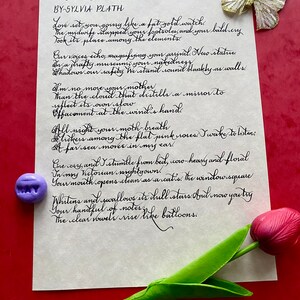 BY SYLVIA PLATH
Love set you going like a fat gold watch.
The midwife slapped your footsoles, and your bald cry
Took its place among the elements.
Our voices echo, magnifying your arrival. New statue.
In a drafty museum, your nakedness
Shadows our safety. We stand round blankly as walls.
I'm no more your mother
Than the cloud that distills a mirror to
reflect its own slow
Effacement at the wind's hand.
All night your moth-breath
Flickers among the flat pink roses. I wake to listen:
A far sea moves in my ear.
One cry, and I stumble from bed, cow-heavy and floral
In my Victorian nightgown.
Your mouth opens clean as a cat's. The window square
Whitens and swallows its dull stars. And now you try
Your handful of notes;
The clear vowels rise like balloons.